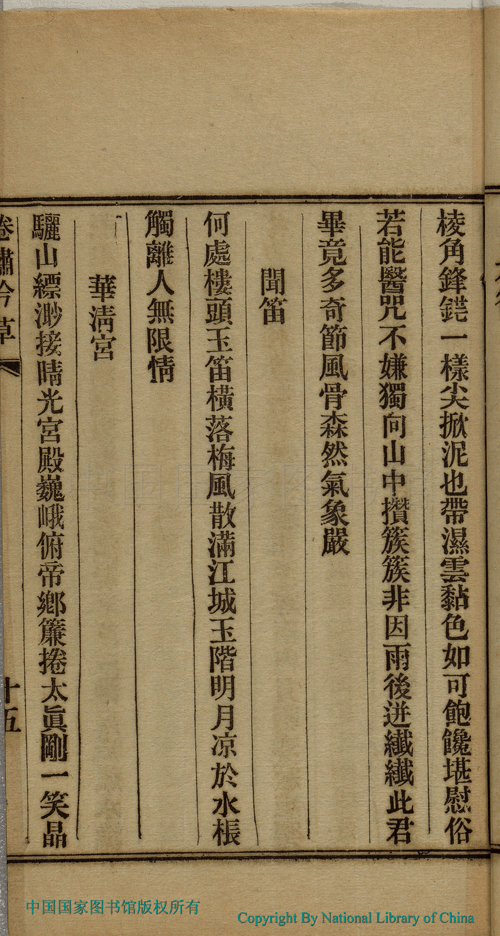 棱角鋒鋩一樣尖掀泥也帶濕雲黏色如可飽饞堪慰俗
若能醫咒不嫌獨向山中攢簇簇非因雨後迸纖纖此君
畢竟多奇節風骨森然氣象嚴
聞笛
何處樓頭玉笛橫落梅風散滿江城玉階明月凉於水棖
觸離人無限情
華淸宮
驪山縹渺接晴光宮殿巍峨俯帝鄉簾捲太眞剛一笑晶
嘯吟草
十五
中国国家图书馆版权所有
Copyright By National Library of China